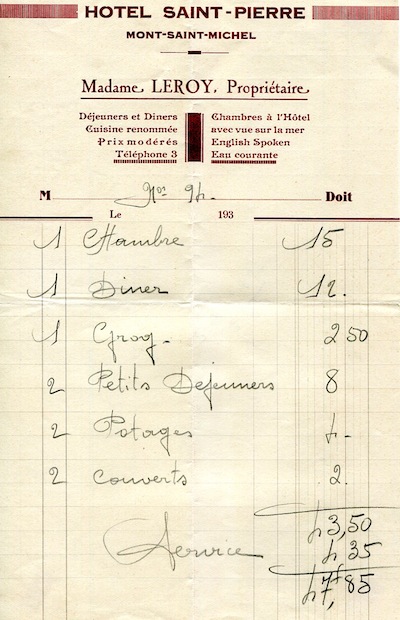 HOTEL SAINT-PIERRE
MONT-SAINT-MICHEL
Madame LEROY, Propriétaire
Déjeuners et Diners
Cuisine renommée
Prix modérés
Téléphone 3
Chambres à l'Hôtel
avec vue sur la mer
English Spoken
Eau courante
M 94. Doit
Le 193
1 Chambre 15
1 Diner 12.
1 Grog - 2 50
2 Petits Dejeuners 8
2 Potages 4 -
2 Couverts 2.
43,50
Service 4 35
47,85